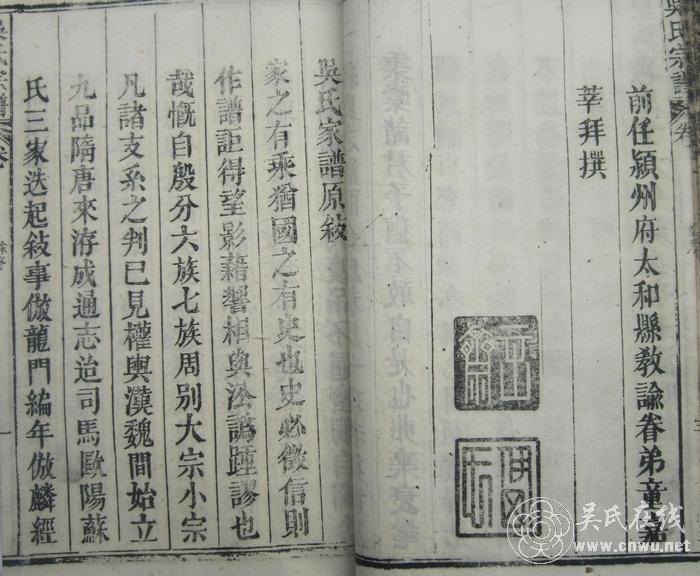 吳氏宗譜 卷
前任潁州府太和縣教諭眷弟童
莘拜撰
吳氏家譜原敘
家之有乘猶國之有史也史必徵信則
作譜詎得望影藉響相與沿譌踵謬也
哉慨自殷分六族七族周別大宗小宗
凡諸支系之判已見權輿漢魏間始立
九品隋唐來洊成通志迨司馬歐陽蘇
氏三家迭起敘事倣龍門編年倣麟經
吳氏宗譜 卷
吴氏在线
www.cnwu.net